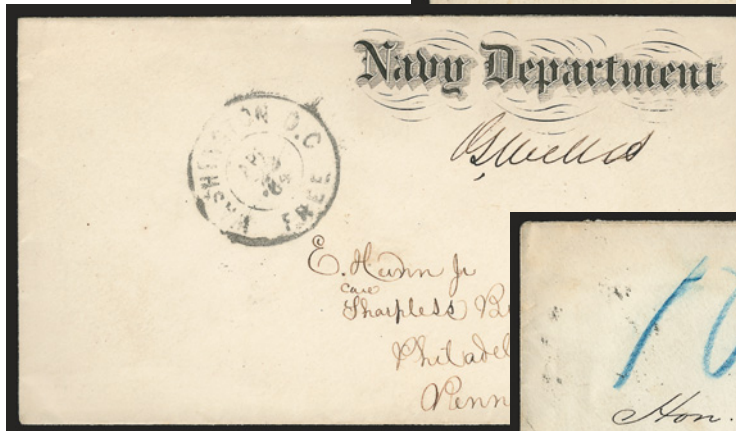 Navy Department
G Welles
WASHINGTON D.C.
FREE
E. Hann Jr
care
Sharpless B
Philadel
Penn
10
Hon.